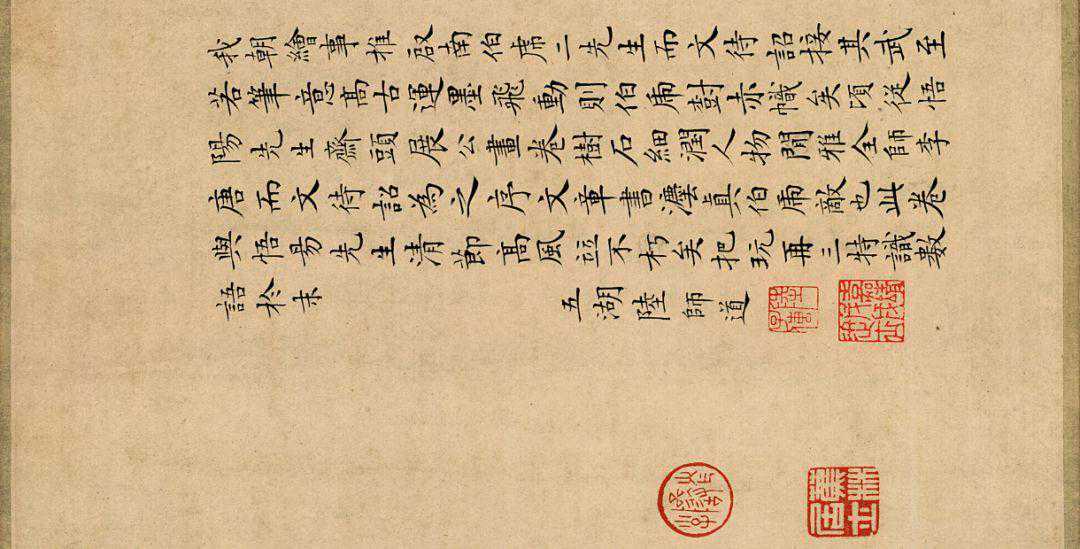 我朝繪事推啟南伯虎二先生而文待詔接其武至
若筆意高古運墨飛動則伯虎尌赤幟矣頃從悟
陽先生齋頭展公畫卷樹石細潤人物閒雅全師李
唐而文待詔為之序文章書灋真伯虎敵也此卷
與悟昜先生清節高風竝不朽矣把玩再三特識數
語於末
五湖陸師道